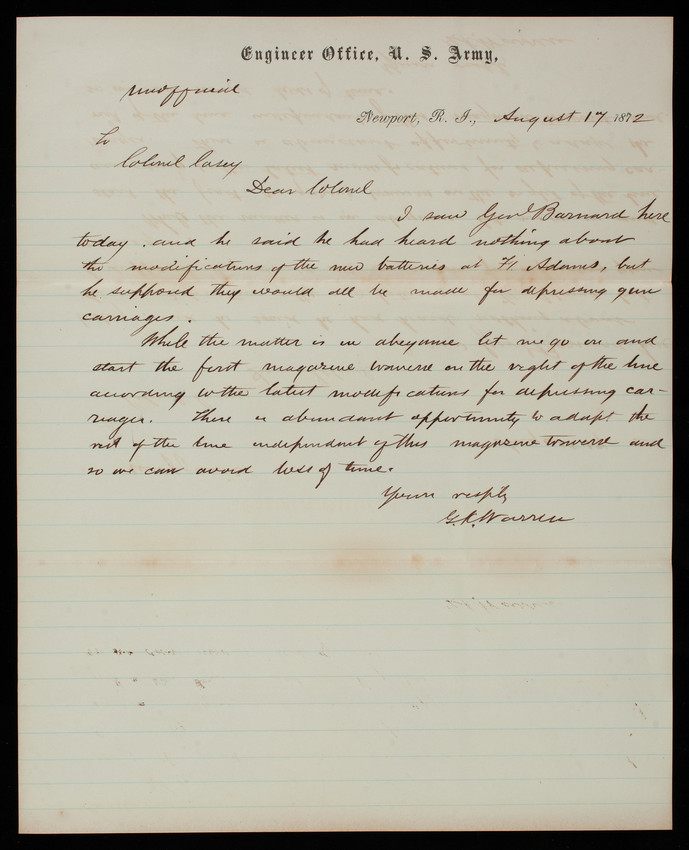 Engineer Office, U. S. Army,
unofficial
Newport, R. I., August 17 1872
To
Colonel Casey
Dear Colonel
I saw Genl Barnard here
today. and he said he had heard nothing about
the modifications of the new batteries at Ft Adams, but
he supposed they would all be made for depressing gun
carriages.
While the matter is in abeyance let me go on and
start the first magazine traverse on the right of the line
according to the latest modifications for depressing car-
riages. There is abundant opportunity to adapt the
rest of the line independent of this magazine traverse and
so we can avoid loss of time.
Yours respty
G.K. Warren